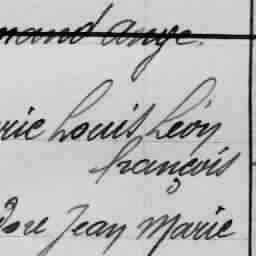 mand Ange.
ric Louis Léon
François
dore Jean Marie